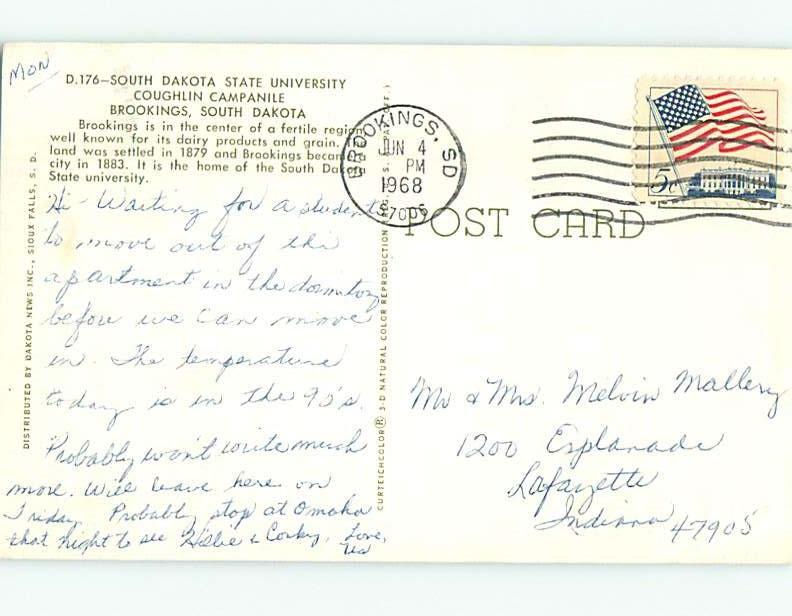 Mon
D.176—SOUTH DAKOTA STATE UNIVERSITY
COUGHLIN CAMPANILE
BROOKINGS, SOUTH DAKOTA
Brookings is in the center of a fertile region
well known for its dairy products and grain.
land was settled in 1879 and Brookings became
city in 1883. It is the home of the South Dakota
State university.
Hi- Waiting for a student
to move out of the
apartment in the dormitory
before we can move
in. The temperature
today is in the 90's.
Probably won't write much
more. Will leave here on
Friday. Probably stop at Omaha
that night to see & Corky. Love,
Us
DISTRIBUTED BY DAKOTA NEWS INC., SIOUX FALLS, S. D.
CURTEICHCOLOR® 3-D NATURAL COLOR REPRODUCTION (REG. U.S. PAT. OFF.)
BROOKINGS, SD
JUN 4
PM
1968
57006
5c
POST CARD
Mr & Mrs. Melvin Mallery
1200 Esplanade
Lafayette
Indiana 47905